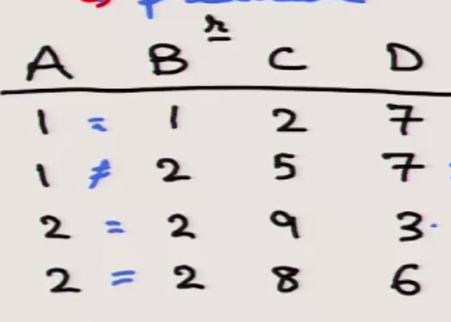 r
A B C D
1 = 1 2 7
1 ≠ 2 5 7
2 = 2 9 3
2 = 2 8 6